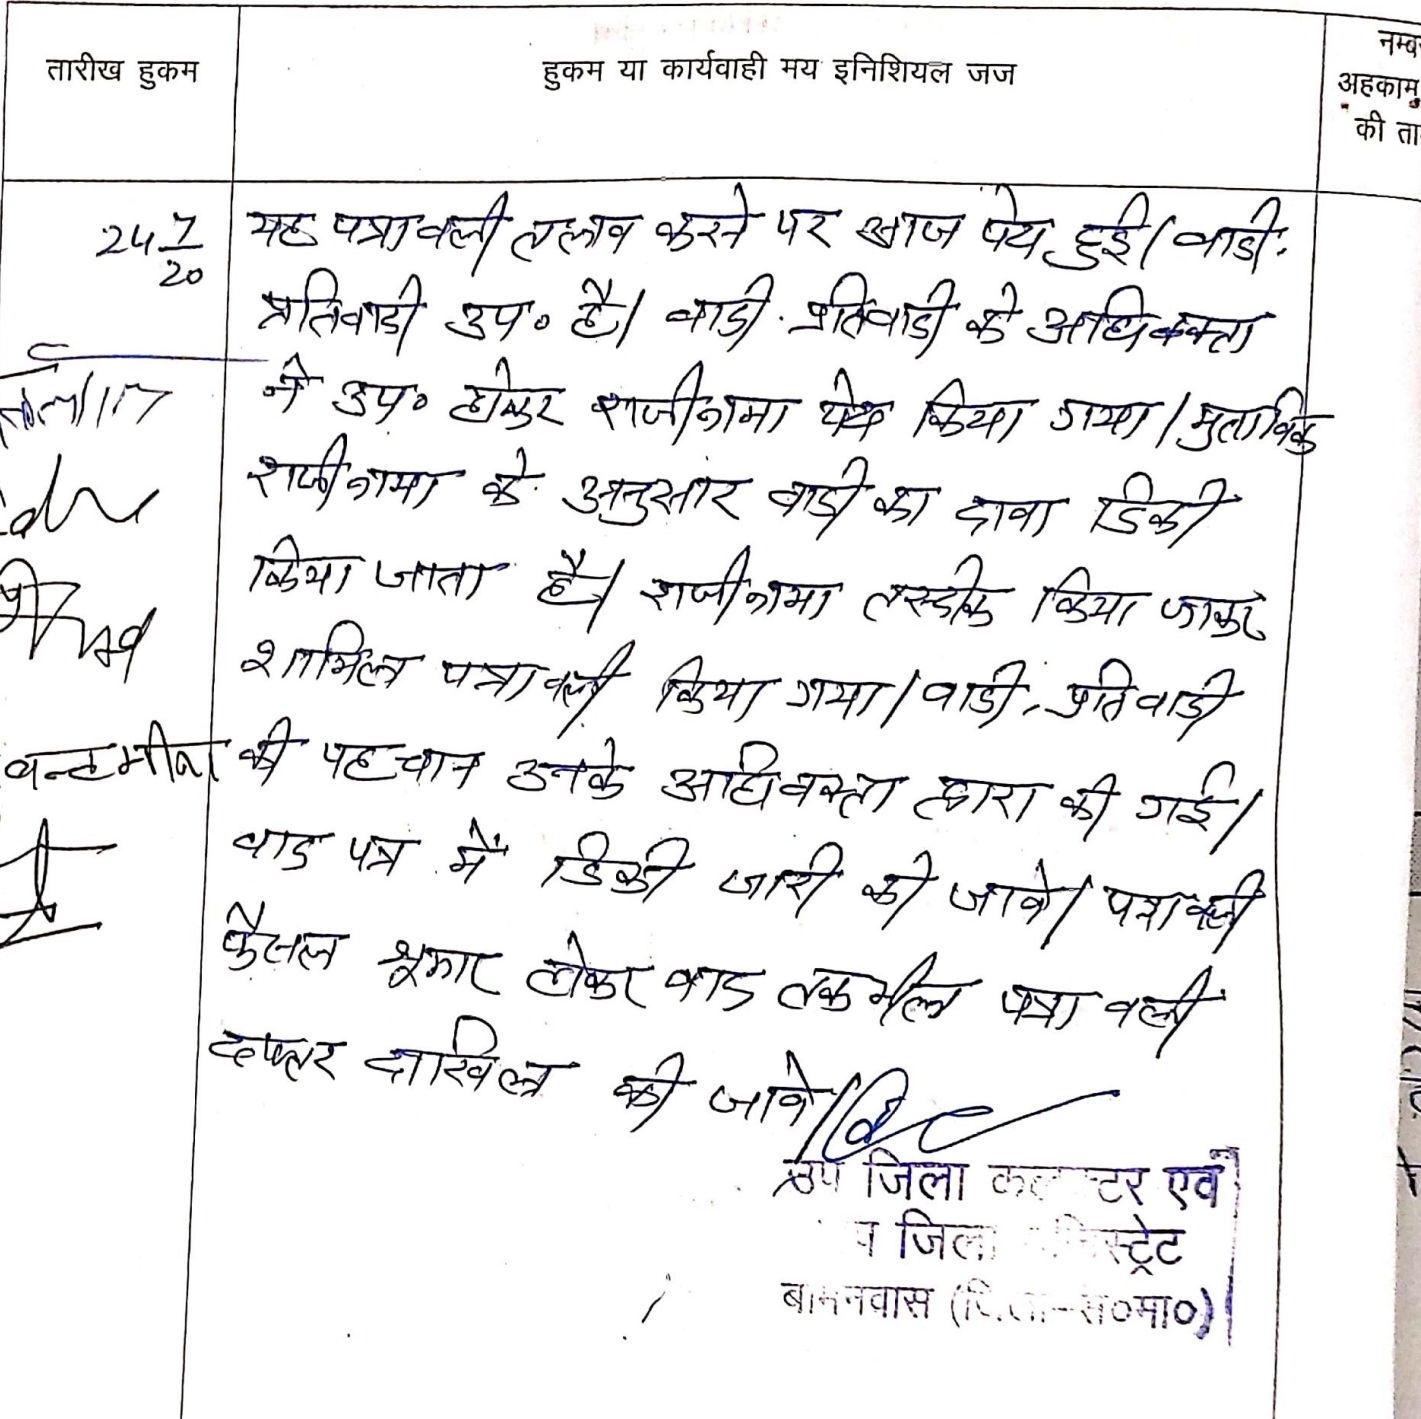 तारीख हुकम
हुकम या कार्यवाही मय इनिशियल जज
नम्ब
अहकाम
की ता
24 7/20
यह पत्रावली तलब करने पर आज पेश हुई। वादी.
प्रतिवादी उप० है। वादी. प्रतिवादी के अधिवक्ता
ने उप० होकर राजीनामा पेश किया गया। मुताबिक
राजीनामा के अनुसार वादी का दावा डिक्री
किया जाता है। राजीनामा तस्दीक किया जाकर
शामिल पत्रावली किया गया। वादी, प्रतिवादी
की पहचान उनके अधिवक्ता द्वारा की गई।
वाद पत्र में डिक्री जारी की जावे। पत्रावली
फैसल शुमार होकर बाद तकमील पत्रावली
दफ्तर दाखिल की जावे।
उप जिला टर एवं
जिला स्ट्रेट
बामनवास स०मा०)